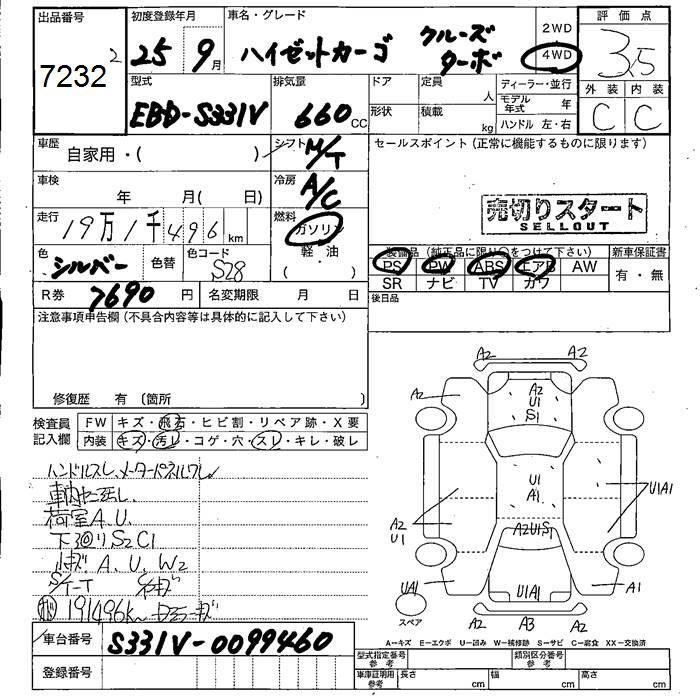 出品番号 初度登録年月 車名・グレード 2WD 評価点
7232 2 25 9月 ハイゼットカーゴ クルーズ ターボ 4WD 3.5
型式 排気量 ドア 定員 ディーラー・並行 外装 内装
EBD-S331V 660 CC 形状 人 積載 kg モデル年式 年 ハンドル 左・右 C C
車歴 自家用・( ) シフト M/T セールスポイント(正常に機能するものに限ります)
車検 年 月( 日) 冷房 A/C
売切りスタート
SELLOUT
走行 19万1千496km 燃料 ガソリン 軽・油 ( )
色 シルバー 色替 色コード S28
装備品(純正品に限り〇をつけて下さい) 新車保証書
PS PW ABS エアB AW 有・無
SR ナビ TV カワ
R券 7690円 名変期限 月 日 後日品
注意事項申告欄(不具合内容等は具体的に記入して下さい)
修復歴 有(箇所
検査員 FW キズ・飛石・ヒビ割・リペア跡・X要
記入欄 内装 キズ・汚レ・コゲ・穴・スレ・キレ・破レ
ハンドルスレ、メーターパネルワレ
荷室A.U.
下回りS2C1
A.U.W2
S/T-T
191496K
A2 A2
A2 A2 U1 S1 A2
U1 A1 U1A1
A2 U1 A2U1S1
UA1 U1A1 A1
スペア A2 A3 A2
A-キズ E-エクボ U-凹み W-補修跡 S-サビ C-腐食 XX-交換済
車台番号 S331V-0099460
型式指定番号 参考 類別区分番号 参考
登録番号 車庫証明用 参考 長さ cm 幅 cm 高さ cm